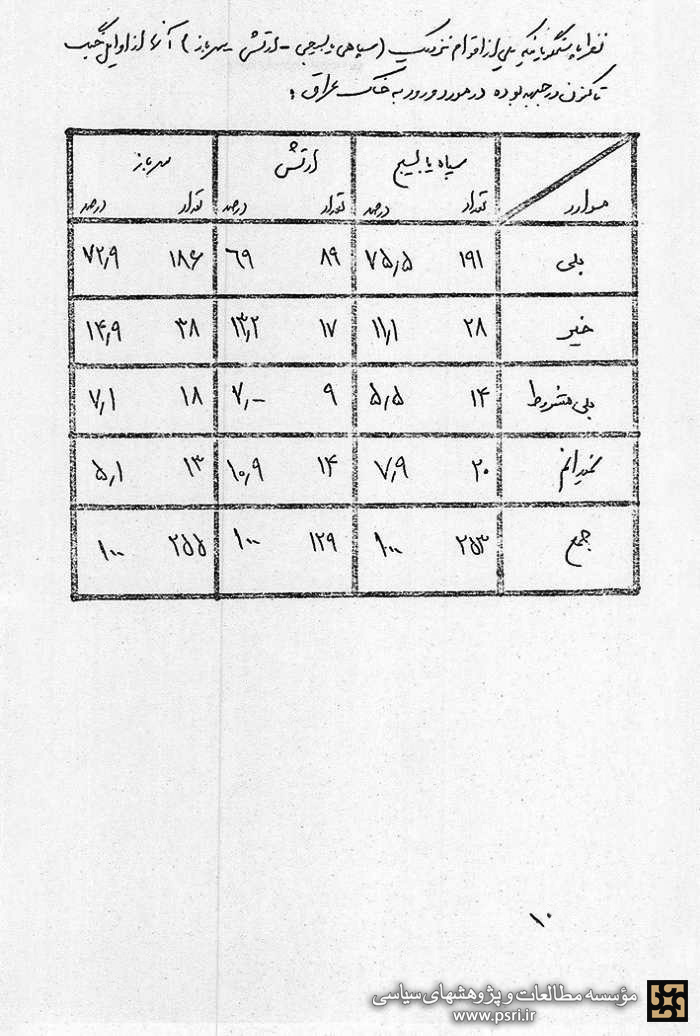 نظر پاسخگویانیکه یکی از اقوام نزدیک (سپاهی یا بسیجی - ارتشی - سرباز) آنها از اوایل جنگ
تاکنون در جبهه بوده در مورد ورود به خاک عراق :
موارد سپاه یا بسیج ارتش سرباز
تعداد درصد تعداد درصد تعداد درصد
بلی ۱۹۱ ۷۵٫۵ ۸۹ ۶۹ ۱۸۶ ۷۲٫۹
خیر ۲۸ ۱۱٫۱ ۱۷ ۱۳٫۲ ۳۸ ۱۴٫۹
بلی مشروط ۱۴ ۵٫۵ ۹ ۷٫۰ ۱۸ ۷٫۱
نمیدانم ۲۰ ۷٫۹ ۱۴ ۱۰٫۹ ۱۳ ۵٫۱
جمع ۲۵۳ ۱۰۰ ۱۲۹ ۱۰۰ ۲۵۵ ۱۰۰
۱۰
مؤسسه مطالعات و پژوهشهای سیاسی
www.psri.ir